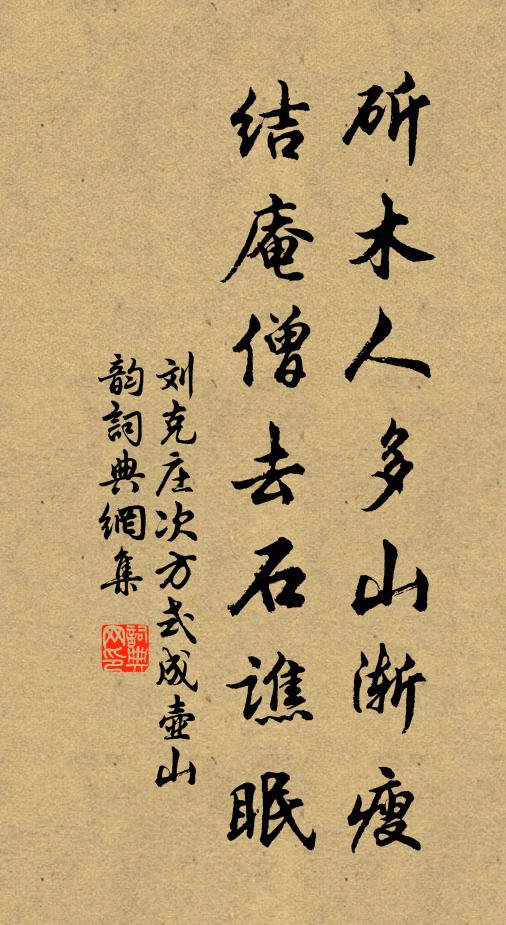 斫木人多山渐瘦
结庵僧去石谯眠
刘克庄次方式成壶山
韵詞典網集
詞典网印